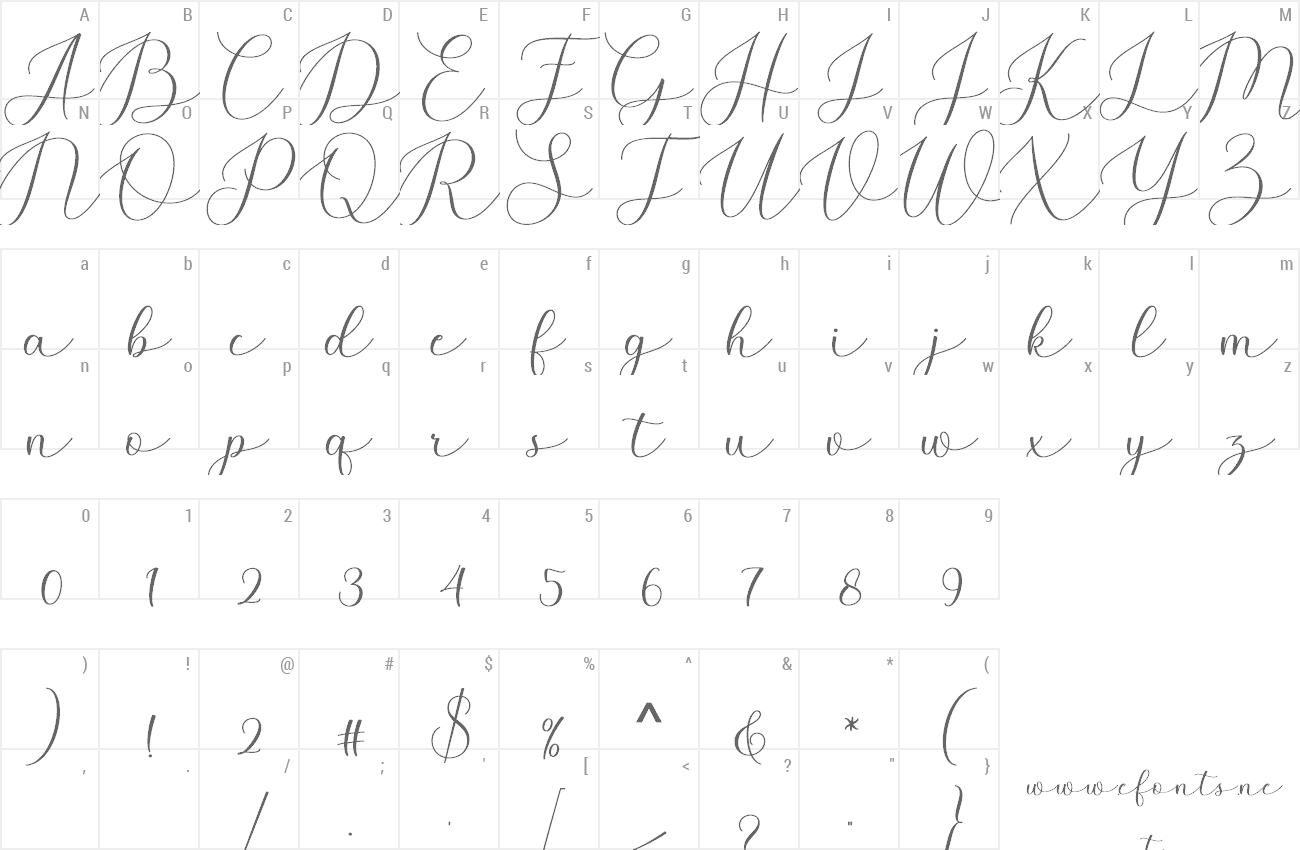 A B C D E F G H I J K L M
A B C D E F G H I J K L M
N O P Q R S T U V W X Y Z
N O P Q R S T U V W X Y Z
a b c d e f g h i j k l m
a b c d e f g h i j k l m
n o p q r s t u v w x y z
n o p q r s t u v w x y z
0 1 2 3 4 5 6 7 8 9
0 1 2 3 4 5 6 7 8 9
) ! @ # $ % ^ & * (
) ! 2 # $ % ^ & * (
, . / ; ' [ < ? " }
/ . ' [ < ? " }
www.efonts.ne
t